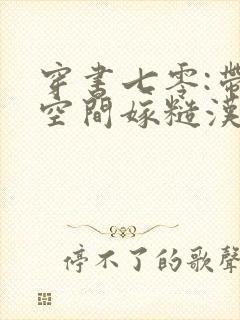 穿書七零:帶
空間嫁糙漢
停不了的歌聲